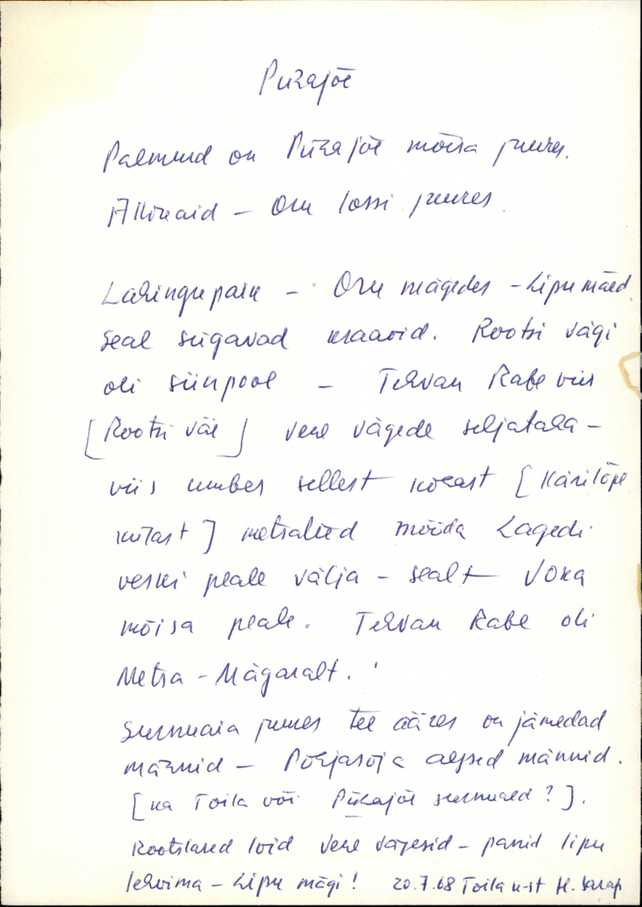 Pühajõe
Palmuid on Pühajõe mõisa juures.
Allikaid – Oru lossi juures.
Lahingupaik – Oru mägedes – Lipumäed.
Seal sügavad kraavid. Rootsi vägi
oli siinpool – Tervan Rabe viis
[Rootsi väe] vene vägede seljataha –
viis umbes sellest kohast [Känilõpe
külast] metsateed mööda Lagedi
veski peale välja – sealt Voka
mõisa peale. Tervan Rabe oli
Metsa-Mägaralt.
Surnuaia juures tee ääres on jämedad
männid – Põhjasõja aegsed männid.
[ka Toila või Pühajõe surnuaed?].
Rootslased lõid vene vägesid – panid lipu
lehvima – Lipu mägi! 20.7.68 Toila k-st H.